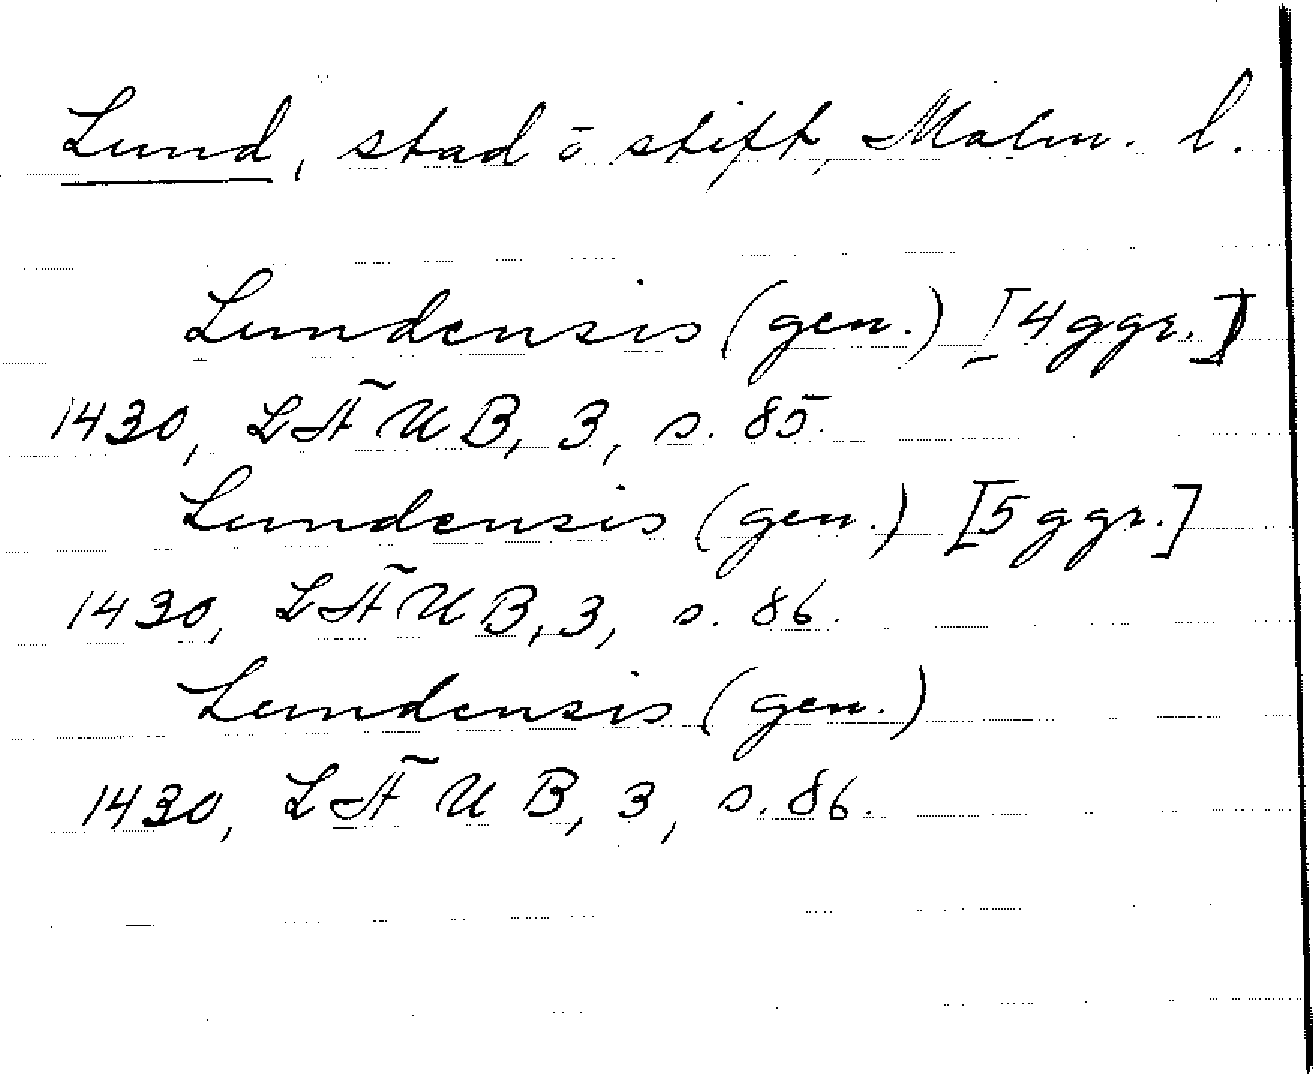 Lund, stad o stift, Malm. l.
Lundensis (gen.) [4 ggr.]
1430, LÄUB, 3, s. 85.
Lundensis (gen.) [5 ggr.]
1430, LÄUB, 3, s. 86.
Lundensis (gen.)
1430, LÄUB, 3, s. 86.